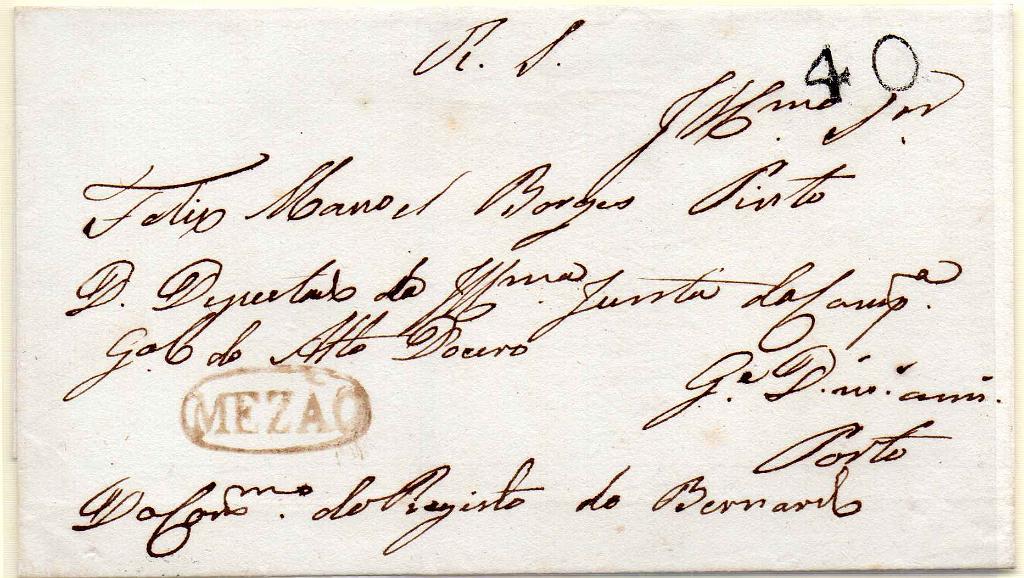 R. S.
40
Illmo. Snr.
Felix Manoel Borges Pinto
D. Deputado da Illma. Junta da Compa.
Gal do Alto Douro
Ge. D.
MEZAÕ
Porto
Do Commo. do Registo do Bernardo